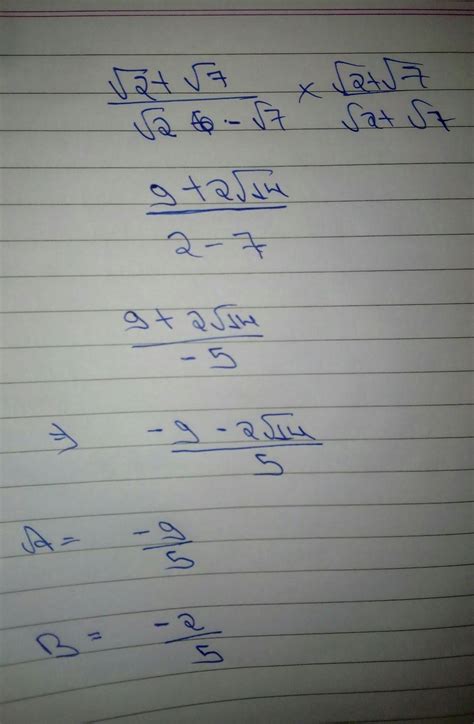 (√2 + √7)/(√2 - √7) × (√2 + √7)/(√2 + √7)
(9 + 2√14)/(2 - 7)
(9 + 2√14)/(-5)
⇒ (-9 - 2√14)/5
A = -9/5
B = -2/5